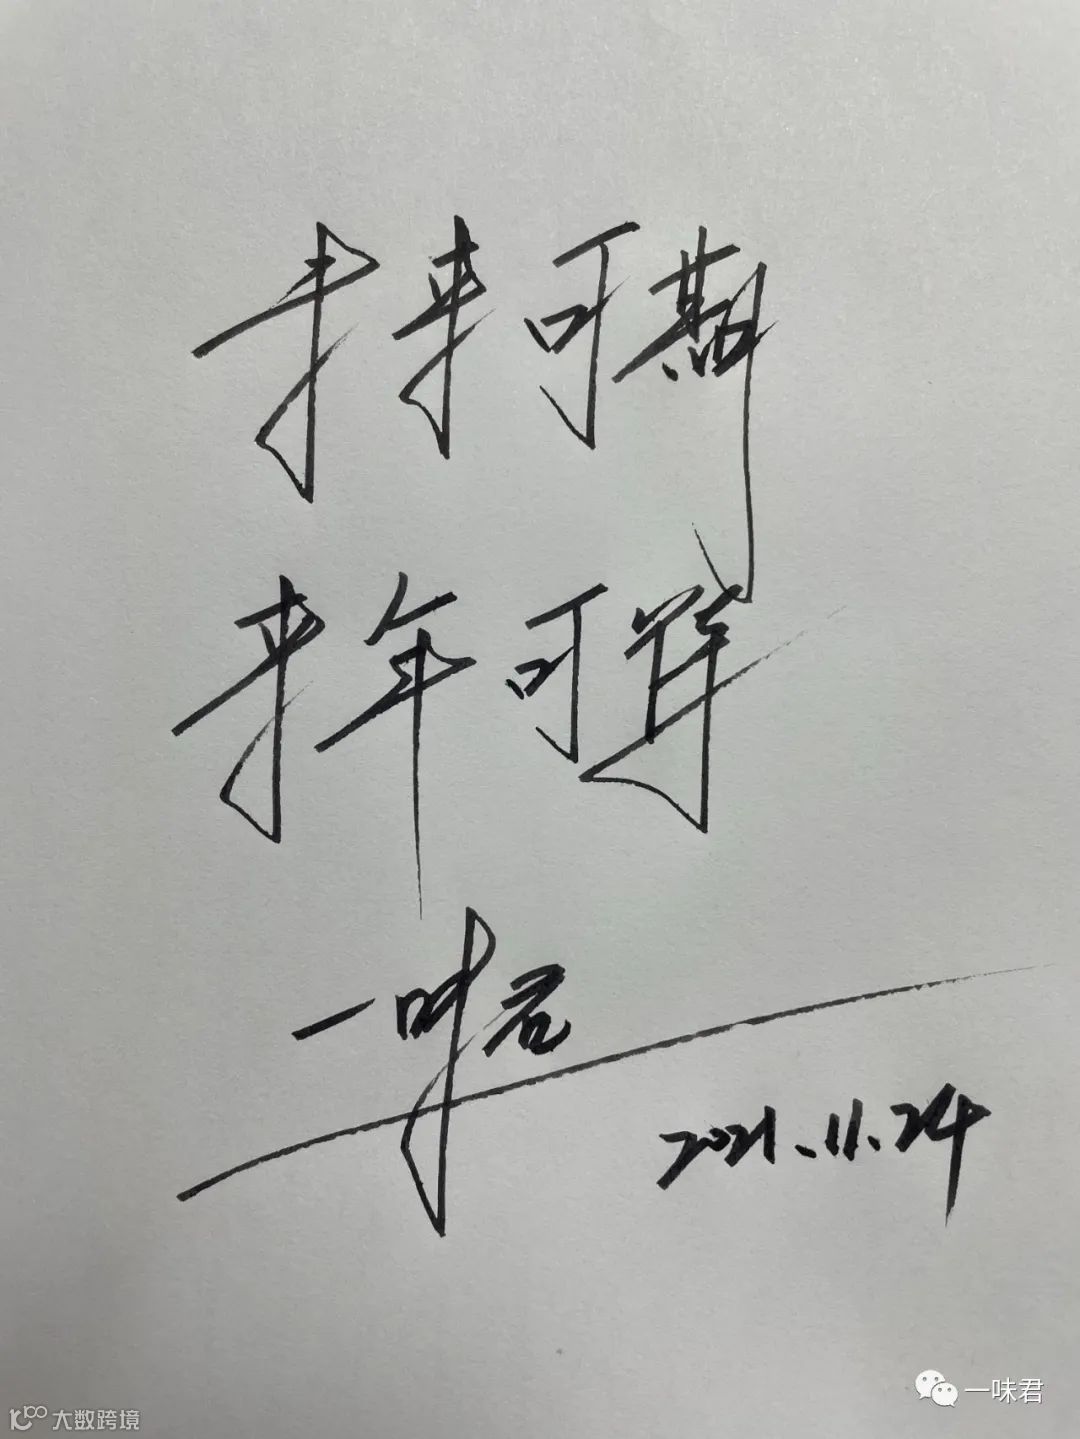 未来可期
来年可
一味君
2021.11.24
一味君
大数跨境